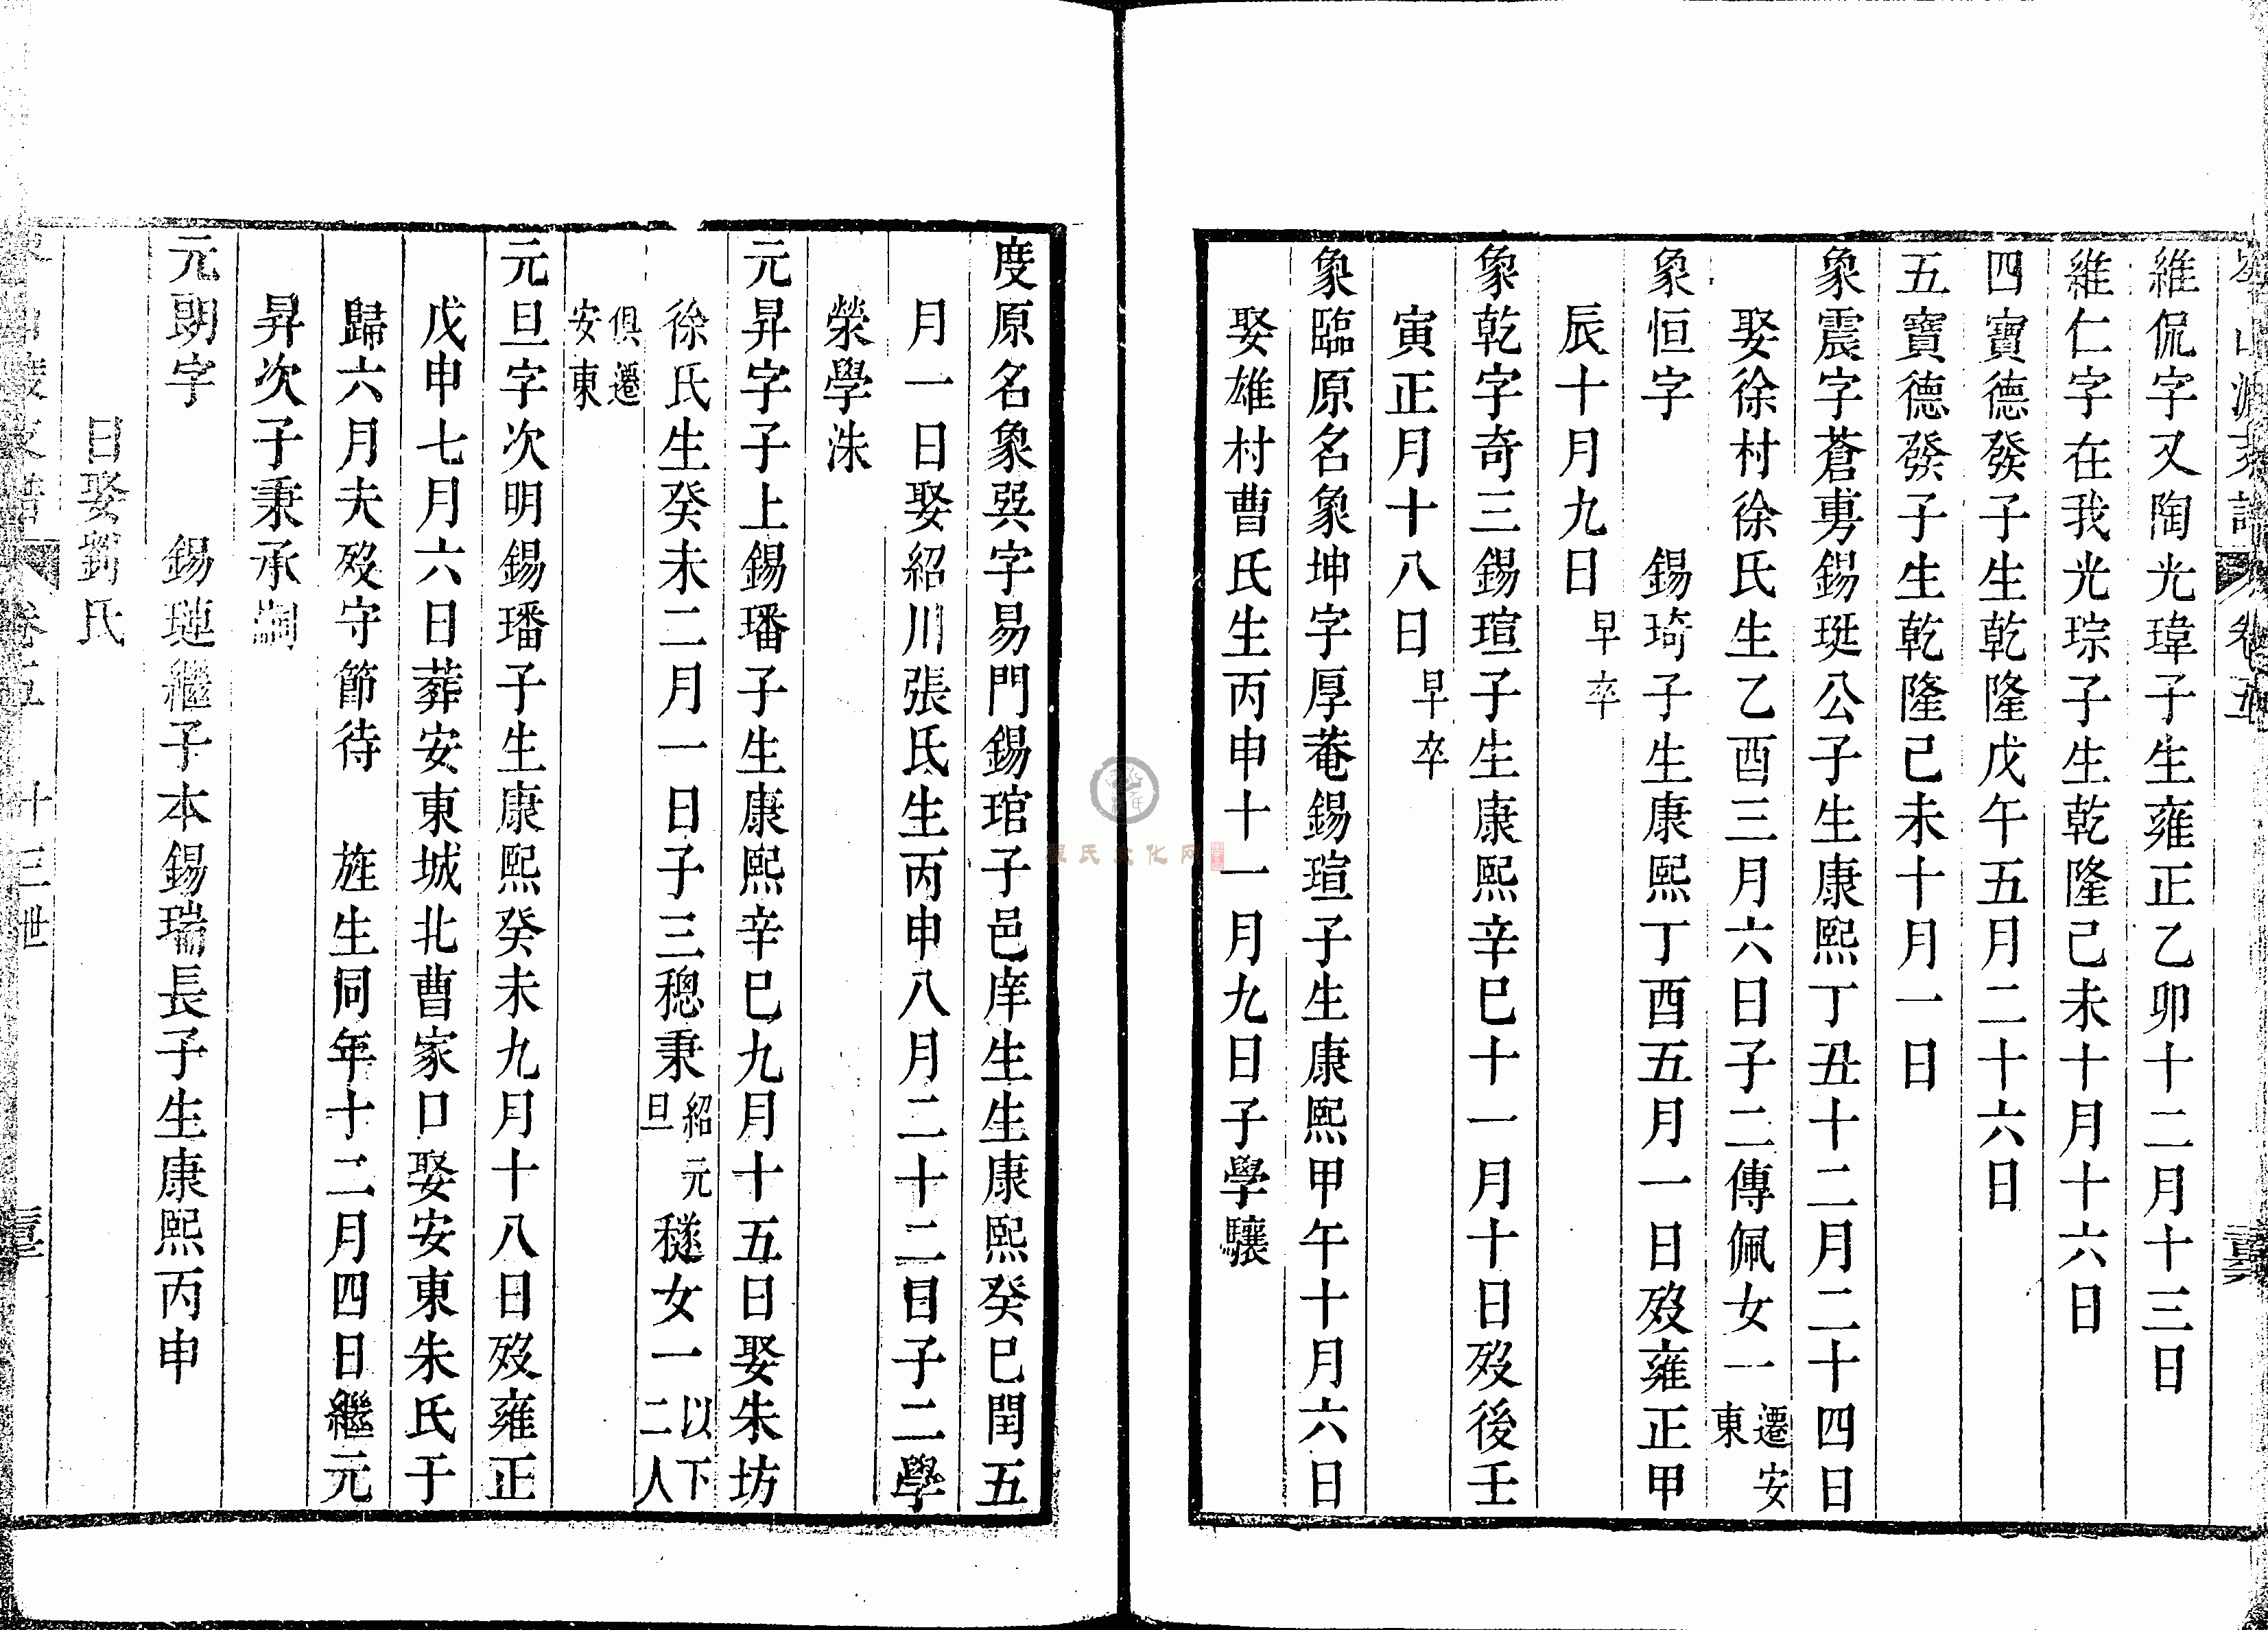 維侃字又陶光瑋子生雍正乙卯十二月十三日
維仁字在我光琮子生乾隆己未十月十六日
四寶德發子生乾隆戊午五月二十六日
五寶德發子生乾隆己未十月一日
象震字蒼旉錫珽公子生康熙丁丑十二月二十四日
娶徐村徐氏生乙酉三月六日子二傳佩女一遷安東
象恒字 錫琦子生康熙丁酉五月一日歿雍正甲
辰十月九日早卒
象乾字奇三錫瑄子生康熙辛巳十一月十日歿後壬
寅正月十八日早卒
象臨原名象坤字厚菴錫瑄子生康熙甲午十月六日
娶雄村曹氏生丙申十一月九日子學驤
度原名象巽字易門錫琯子邑庠生生康熙癸巳閏五
月一日娶紹川張氏生丙申八月二十二日子二學
榮學洙
元昇字子上錫璠子生康熙辛巳九月十五日娶朱坊
徐氏生癸未二月一日子三穗秉紹元旦穟女一以下二人
俱遷安東
元旦字次明錫璠子生康熙癸未九月十八日歿雍正
戊申七月六日葬安東城北曹家口娶安東朱氏于
歸六月夫歿守節待 旌生同年十二月四日繼元
昇次子秉承嗣
元朗字 錫璉繼子本錫瑞長子生康熙丙申
日娶劉氏
卷五 十三世